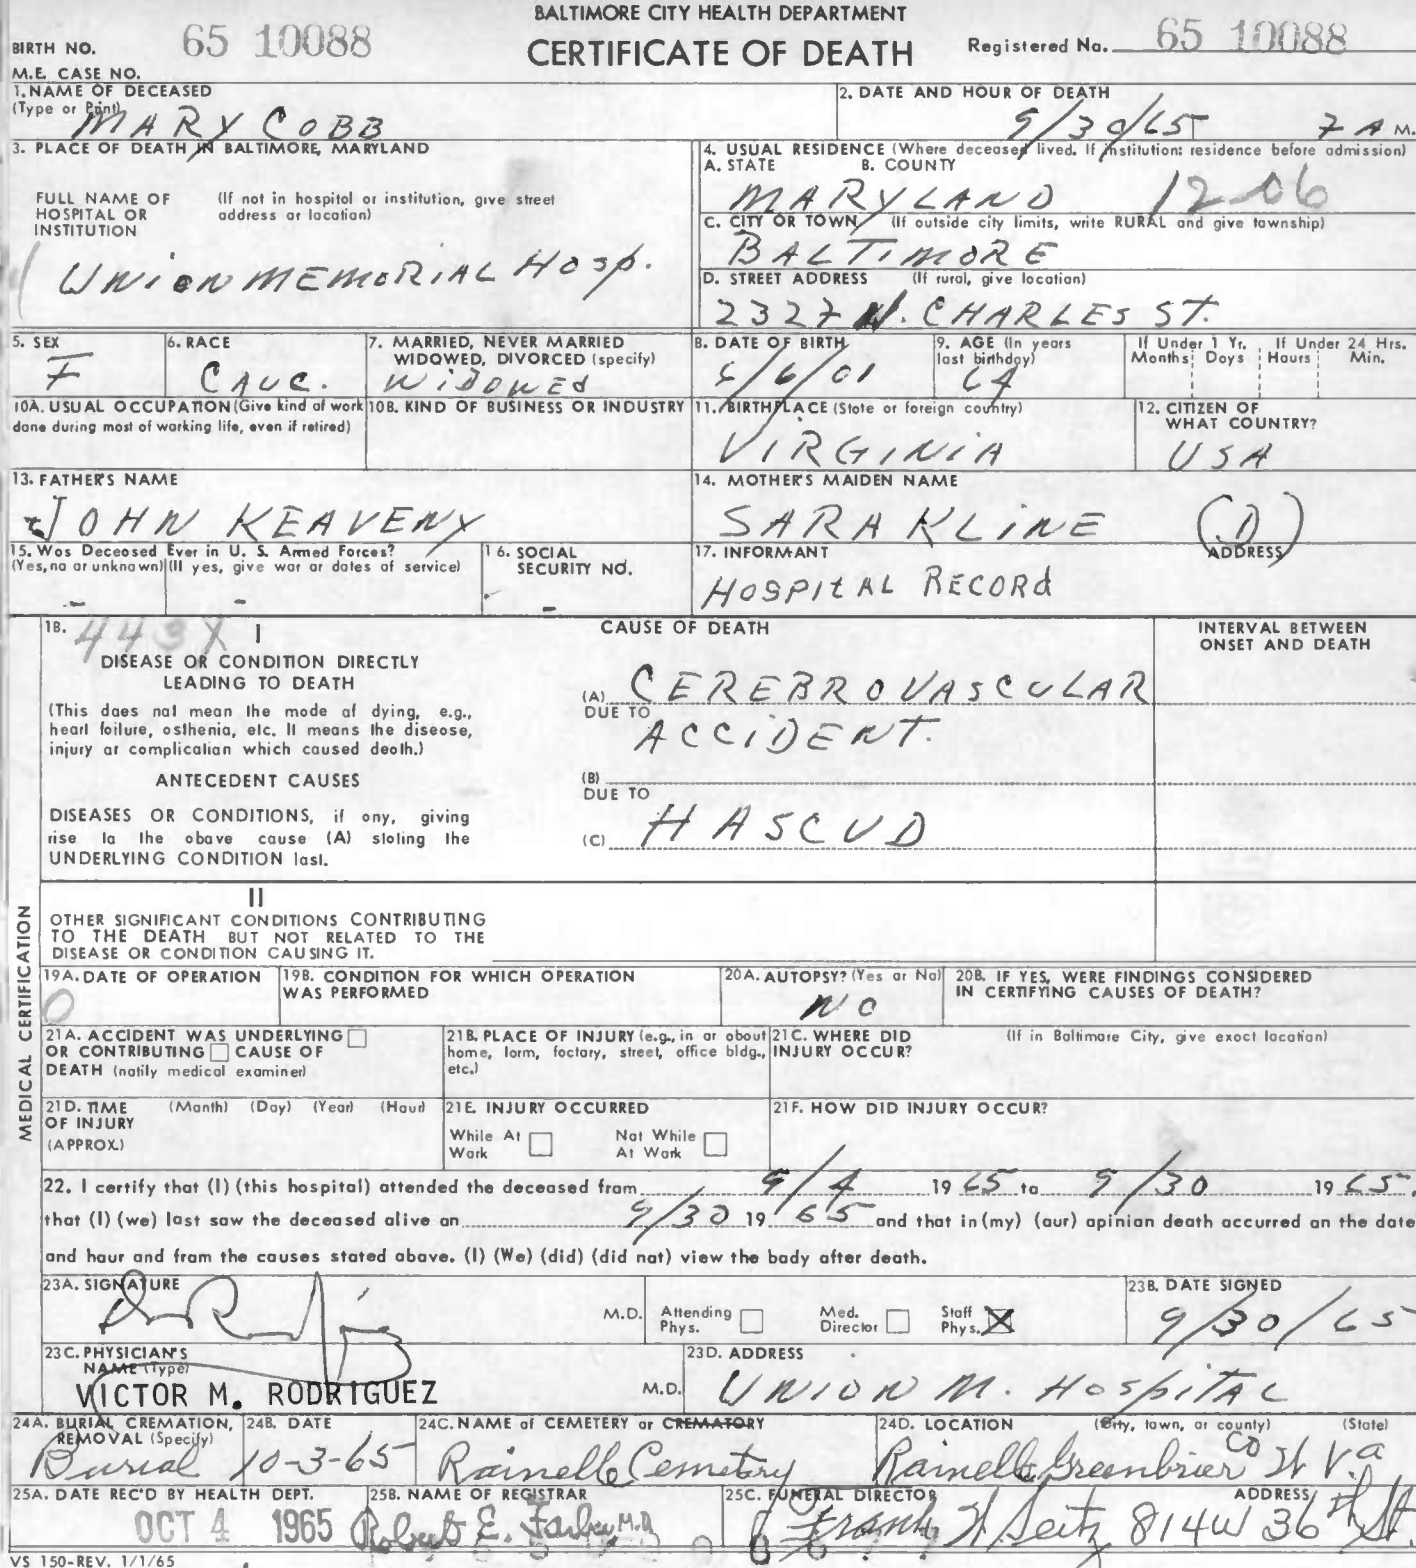 BALTIMORE CITY HEALTH DEPARTMENT
BIRTH NO. 65 10088 CERTIFICATE OF DEATH Registered No. 65 10088
M.E. CASE NO.
1. NAME OF DECEASED (Type or Print) MARY COBB
2. DATE AND HOUR OF DEATH 9/30/65 7 A M.
3. PLACE OF DEATH IN BALTIMORE, MARYLAND
FULL NAME OF HOSPITAL OR INSTITUTION (If not in hospital or institution, give street address or location)
UNION MEMORIAL HOSP.
4. USUAL RESIDENCE (Where deceased lived. If institution: residence before admission)
A. STATE B. COUNTY
MARYLAND 12-06
C. CITY OR TOWN (If outside city limits, write RURAL and give township)
BALTIMORE
D. STREET ADDRESS (If rural, give location)
2327 N. CHARLES ST.
5. SEX F
6. RACE CAUC.
7. MARRIED, NEVER MARRIED WIDOWED, DIVORCED (specify) WIDOWED
8. DATE OF BIRTH 6/6/01
9. AGE (In years last birthday) 64
If Under 1 Yr. Months Days
If Under 24 Hrs. Hours Min.
10A. USUAL OCCUPATION (Give kind of work done during most of working life, even if retired)
10B. KIND OF BUSINESS OR INDUSTRY
11. BIRTHPLACE (State or foreign country) VIRGINIA
12. CITIZEN OF WHAT COUNTRY? USA
13. FATHER'S NAME JOHN KEAVENY
14. MOTHER'S MAIDEN NAME SARA KLINE (D)
15. Was Deceased Ever in U. S. Armed Forces?
(Yes, no or unknown) (If yes, give war or dates of service)
- -
16. SOCIAL SECURITY NO. -
17. INFORMANT ADDRESS
HOSPITAL RECORD
MEDICAL CERTIFICATION
18. 443X I
DISEASE OR CONDITION DIRECTLY LEADING TO DEATH
(This does not mean the mode of dying, e.g., heart failure, asthenia, etc. It means the disease, injury or complication which caused death.)
ANTECEDENT CAUSES
DISEASES OR CONDITIONS, if any, giving rise to the above cause (A) stating the UNDERLYING CONDITION last.
CAUSE OF DEATH
(A) CEREBROVASCULAR
DUE TO ACCIDENT.
(B)
DUE TO
(C) HASCVD
INTERVAL BETWEEN ONSET AND DEATH
II
OTHER SIGNIFICANT CONDITIONS CONTRIBUTING TO THE DEATH BUT NOT RELATED TO THE DISEASE OR CONDITION CAUSING IT.
19A. DATE OF OPERATION 0
19B. CONDITION FOR WHICH OPERATION WAS PERFORMED
20A. AUTOPSY? (Yes or No) NO
20B. IF YES, WERE FINDINGS CONSIDERED IN CERTIFYING CAUSES OF DEATH?
21A. ACCIDENT WAS UNDERLYING OR CONTRIBUTING CAUSE OF DEATH (notify medical examiner)
21B. PLACE OF INJURY (e.g., in or about home, farm, factory, street, office bldg., etc.)
21C. WHERE DID INJURY OCCUR? (If in Baltimore City, give exact location)
21D. TIME OF INJURY (APPROX.) (Month) (Day) (Year) (Hour)
21E. INJURY OCCURRED
While At Work Not While At Work
21F. HOW DID INJURY OCCUR?
22. I certify that (I) (this hospital) attended the deceased from 9/4 1965 to 9/30 1965,
that (I) (we) last saw the deceased alive on 9/30 1965 and that in (my) (our) opinion death occurred on the date
and hour and from the causes stated above. (I) (We) (did) (did not) view the body after death.
23A. SIGNATURE M.D.
Attending Phys. Med. Director Staff Phys. X
23B. DATE SIGNED 9/30/65
23C. PHYSICIAN'S NAME (Type) VICTOR M. RODRIGUEZ M.D.
23D. ADDRESS UNION M. HOSPITAL
24A. BURIAL, CREMATION, REMOVAL (Specify) Burial
24B. DATE 10-3-65
24C. NAME of CEMETERY or CREMATORY Rainelle Cemetery
24D. LOCATION (City, town, or county) (State)
Rainelle Greenbrier Co W Va
25A. DATE REC'D BY HEALTH DEPT. OCT 4 1965
25B. NAME OF REGISTRAR Robert E. Farber M.D.
25C. FUNERAL DIRECTOR ADDRESS
Frank H Seitz 814 W 36th St.
VS 150-REV. 1/1/65